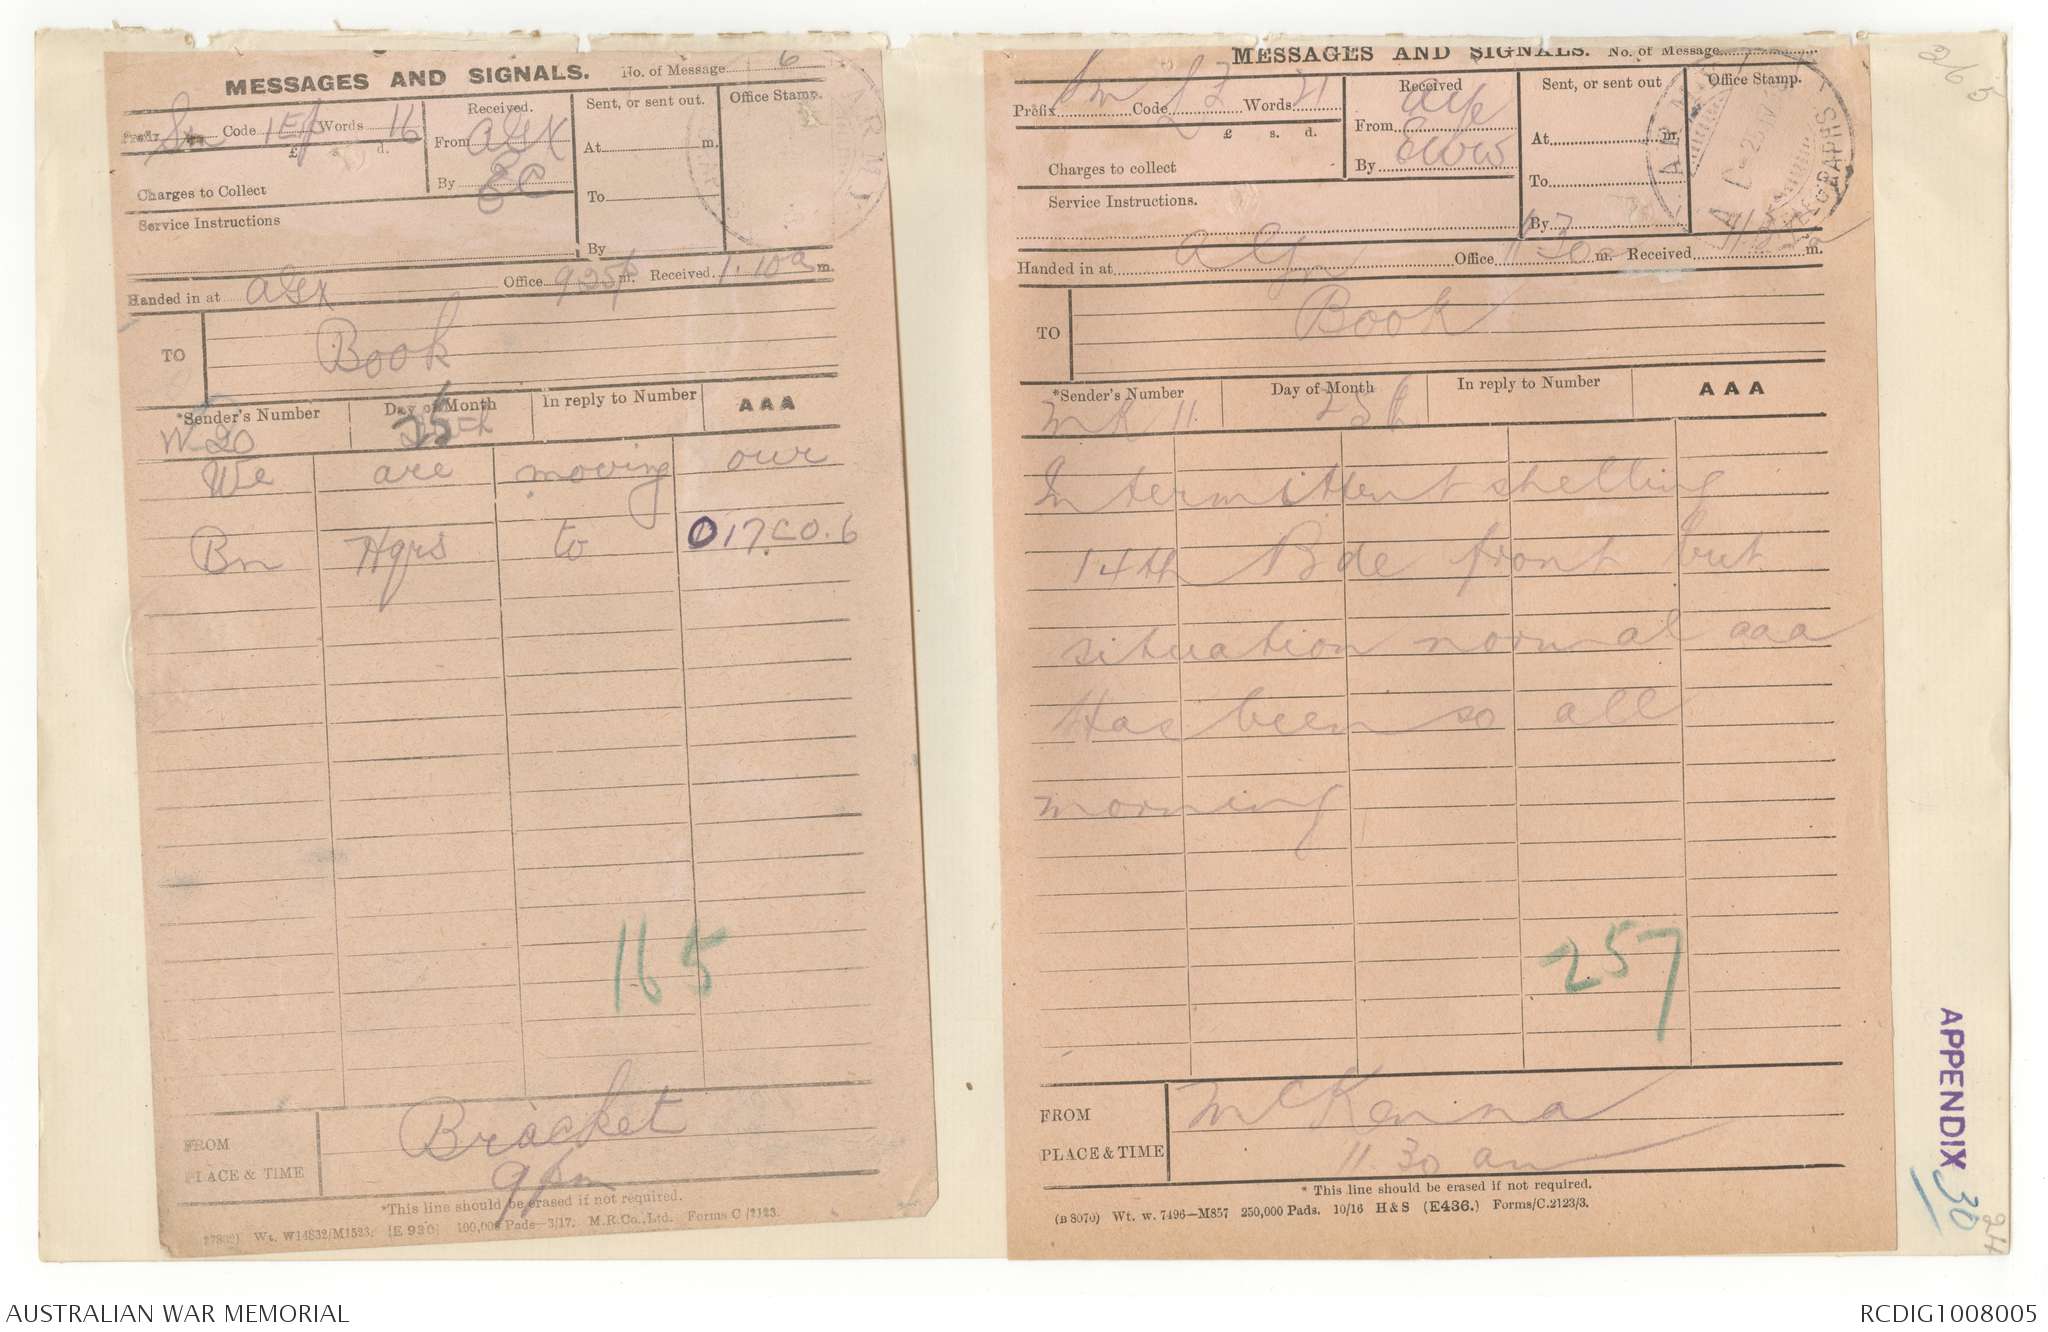 MESSAGES AND SIGNALS. No. of Message 6
Prefix Sm Code 1Ep Words 16
£ s. d.
Charges to Collect
Service Instructions
Received.
From AGX
By EC
Sent, or sent out.
At m.
To
By
Office Stamp.
Handed in at AGX Office 9.25p m. Received 1.10a m.
TO Book
*Sender's Number Day of Month In reply to Number AAA
W 20 25
We are moving our
Bn Hqrs to O17.C0.6
165
FROM Bracket
PLACE & TIME 9pm
*This line should be erased if not required.
Wt. W14832/M1523. (E 930) 100,000 Pads—3/17. M.R.Co., Ltd. Forms C/2123.
MESSAGES AND SIGNALS. No. of Message
Prefix Sm Code Words 21
£ s. d.
Charges to collect
Service Instructions.
Received
From
By
Sent, or sent out
At m.
To
By
Office Stamp.
TELEGRAPHS
Handed in at Office 11.30a m. Received m.
TO Book
*Sender's Number Day of Month In reply to Number AAA
MK 11 25th
Intermittent shelling
14th Bde front but
situation normal aaa
Has been so all
morning
257
FROM McKenna
PLACE & TIME 11.30 am
* This line should be erased if not required.
(B 8070) Wt. w. 7496—M857 250,000 Pads. 10/16 H & S (E436.) Forms/C.2123/3.
265
APPENDIX 30
24
AUSTRALIAN WAR MEMORIAL
RCDIG1008005